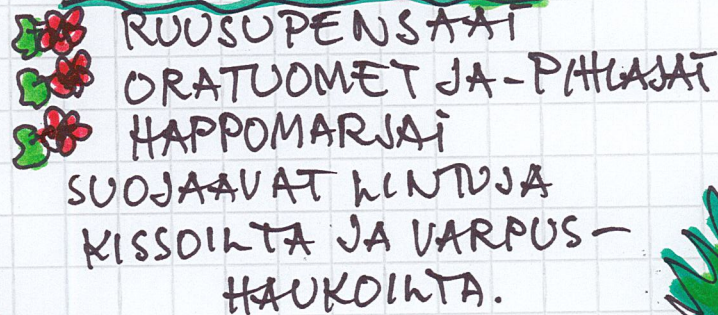 RUUSUPENSAAT
ORATUOMET JA -PIHLAJAT
HAPPOMARJAT
SUOJAAVAT LINTUJA
KISSOILTA JA VARPUS-
HAUKOILTA.